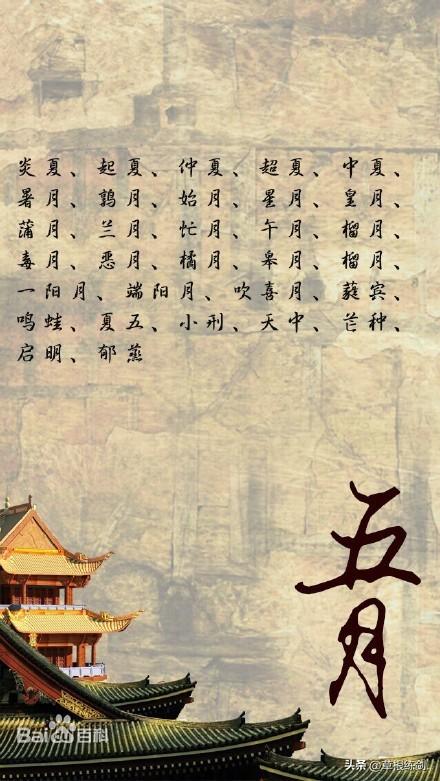 炎夏、起夏、仲夏、超夏、中夏、
暑月、鹑月、始月、星月、皇月、
蒲月、兰月、忙月、午月、榴月、
毒月、恶月、橘月、皋月、榴月、
一阳月、端阳月、吹喜月、蕤宾、
鸣蛙、夏五、小刑、天中、芒种、
启明、郁蒸
五月
Bai百科
头条 @草根练剑